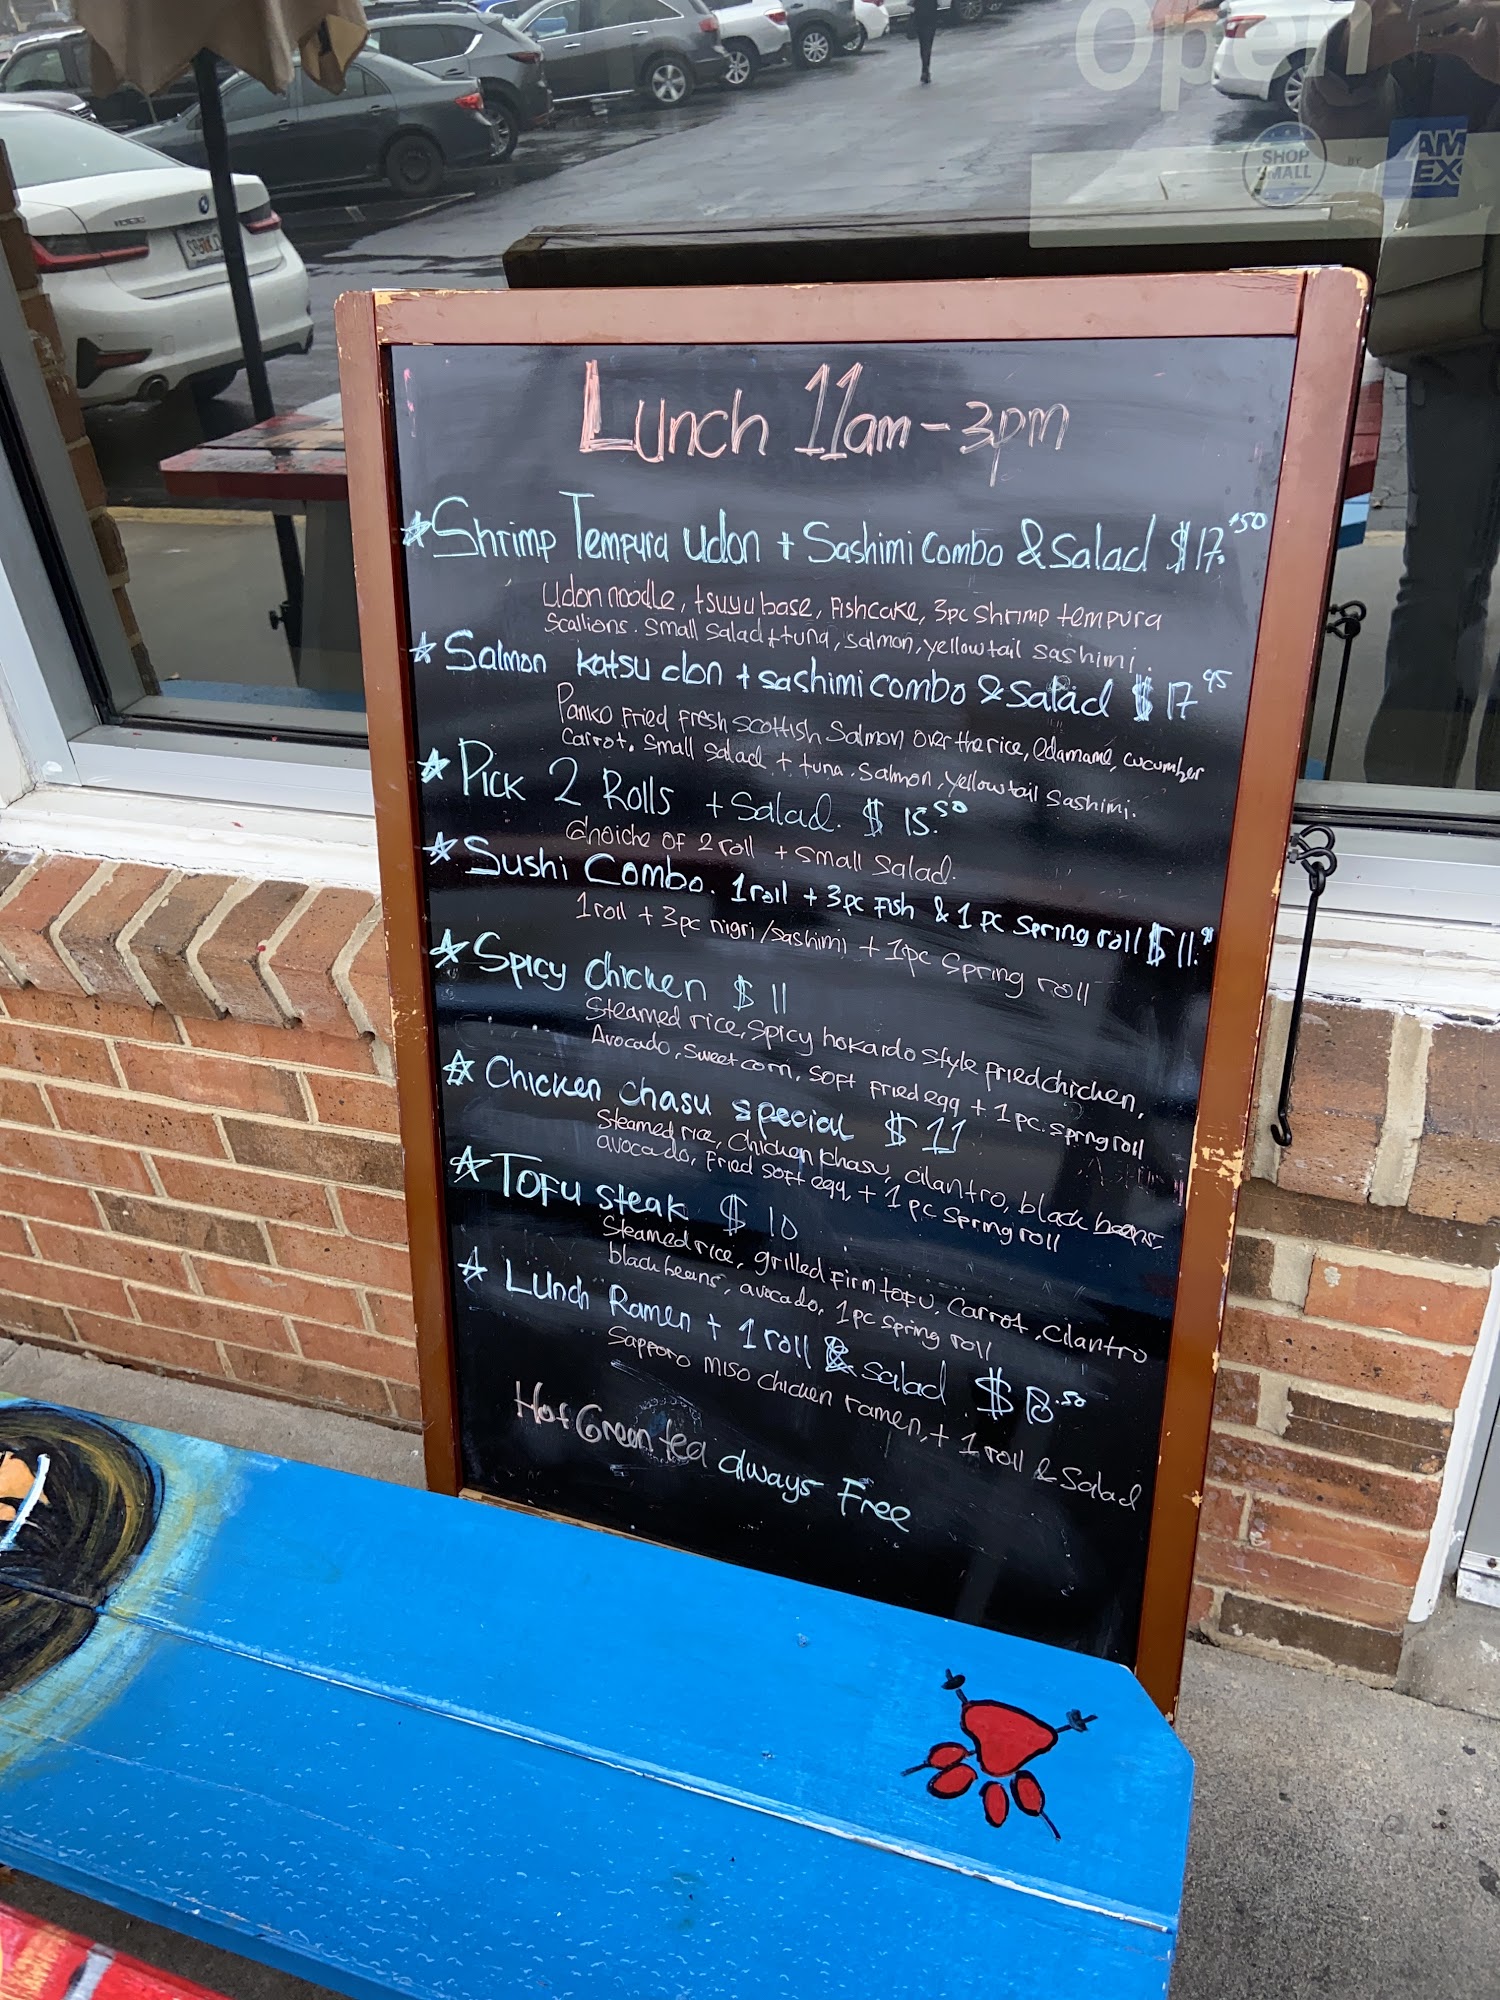 Open
SHOP
SMALL
BY
AM
EX
Lunch 11am - 3pm
☆ Shrimp Tempura udon + Sashimi Combo & Salad $17.50
Udon noodle, tsuyu base, Fishcake, 3pc Shrimp tempura
Scallions. Small Salad + tuna, salmon, yellowtail sashimi.
☆ Salmon katsu don + sashimi combo & Salad $17 95
Panko Fried Fresh Scottish Salmon over the rice, Edamame, cucumber
Carrot. Small Salad + tuna. Salmon, Yellowtail Sashimi.
☆ Pick 2 Rolls + Salad. $15.50
Choiche of 2 roll + Small Salad.
☆ Sushi Combo. 1 roll + 3pc Fish & 1 pc Spring roll $11.
1 roll + 3pc nigri/sashimi + 1pc Spring roll
☆ Spicy Chicken $11
Steamed rice, Spicy hokaido style fried chicken,
Avocado, Sweet corn, Soft Fried egg + 1 pc. spring roll
☆ Chicken chasu special $11
Steamed rice, Chicken khasu, cilantro, black beans,
avocado, Fried soft egg, + 1 pc Spring roll
☆ Tofu steak $10
Steamed rice, grilled Firm tofu, Carrot, Cilantro
black beans, avocado, 1pc Spring roll
☆ Lunch Ramen + 1 roll & Salad $18.50
Sapporo Miso Chicken ramen, + 1 roll & Salad
Hot Green tea always Free